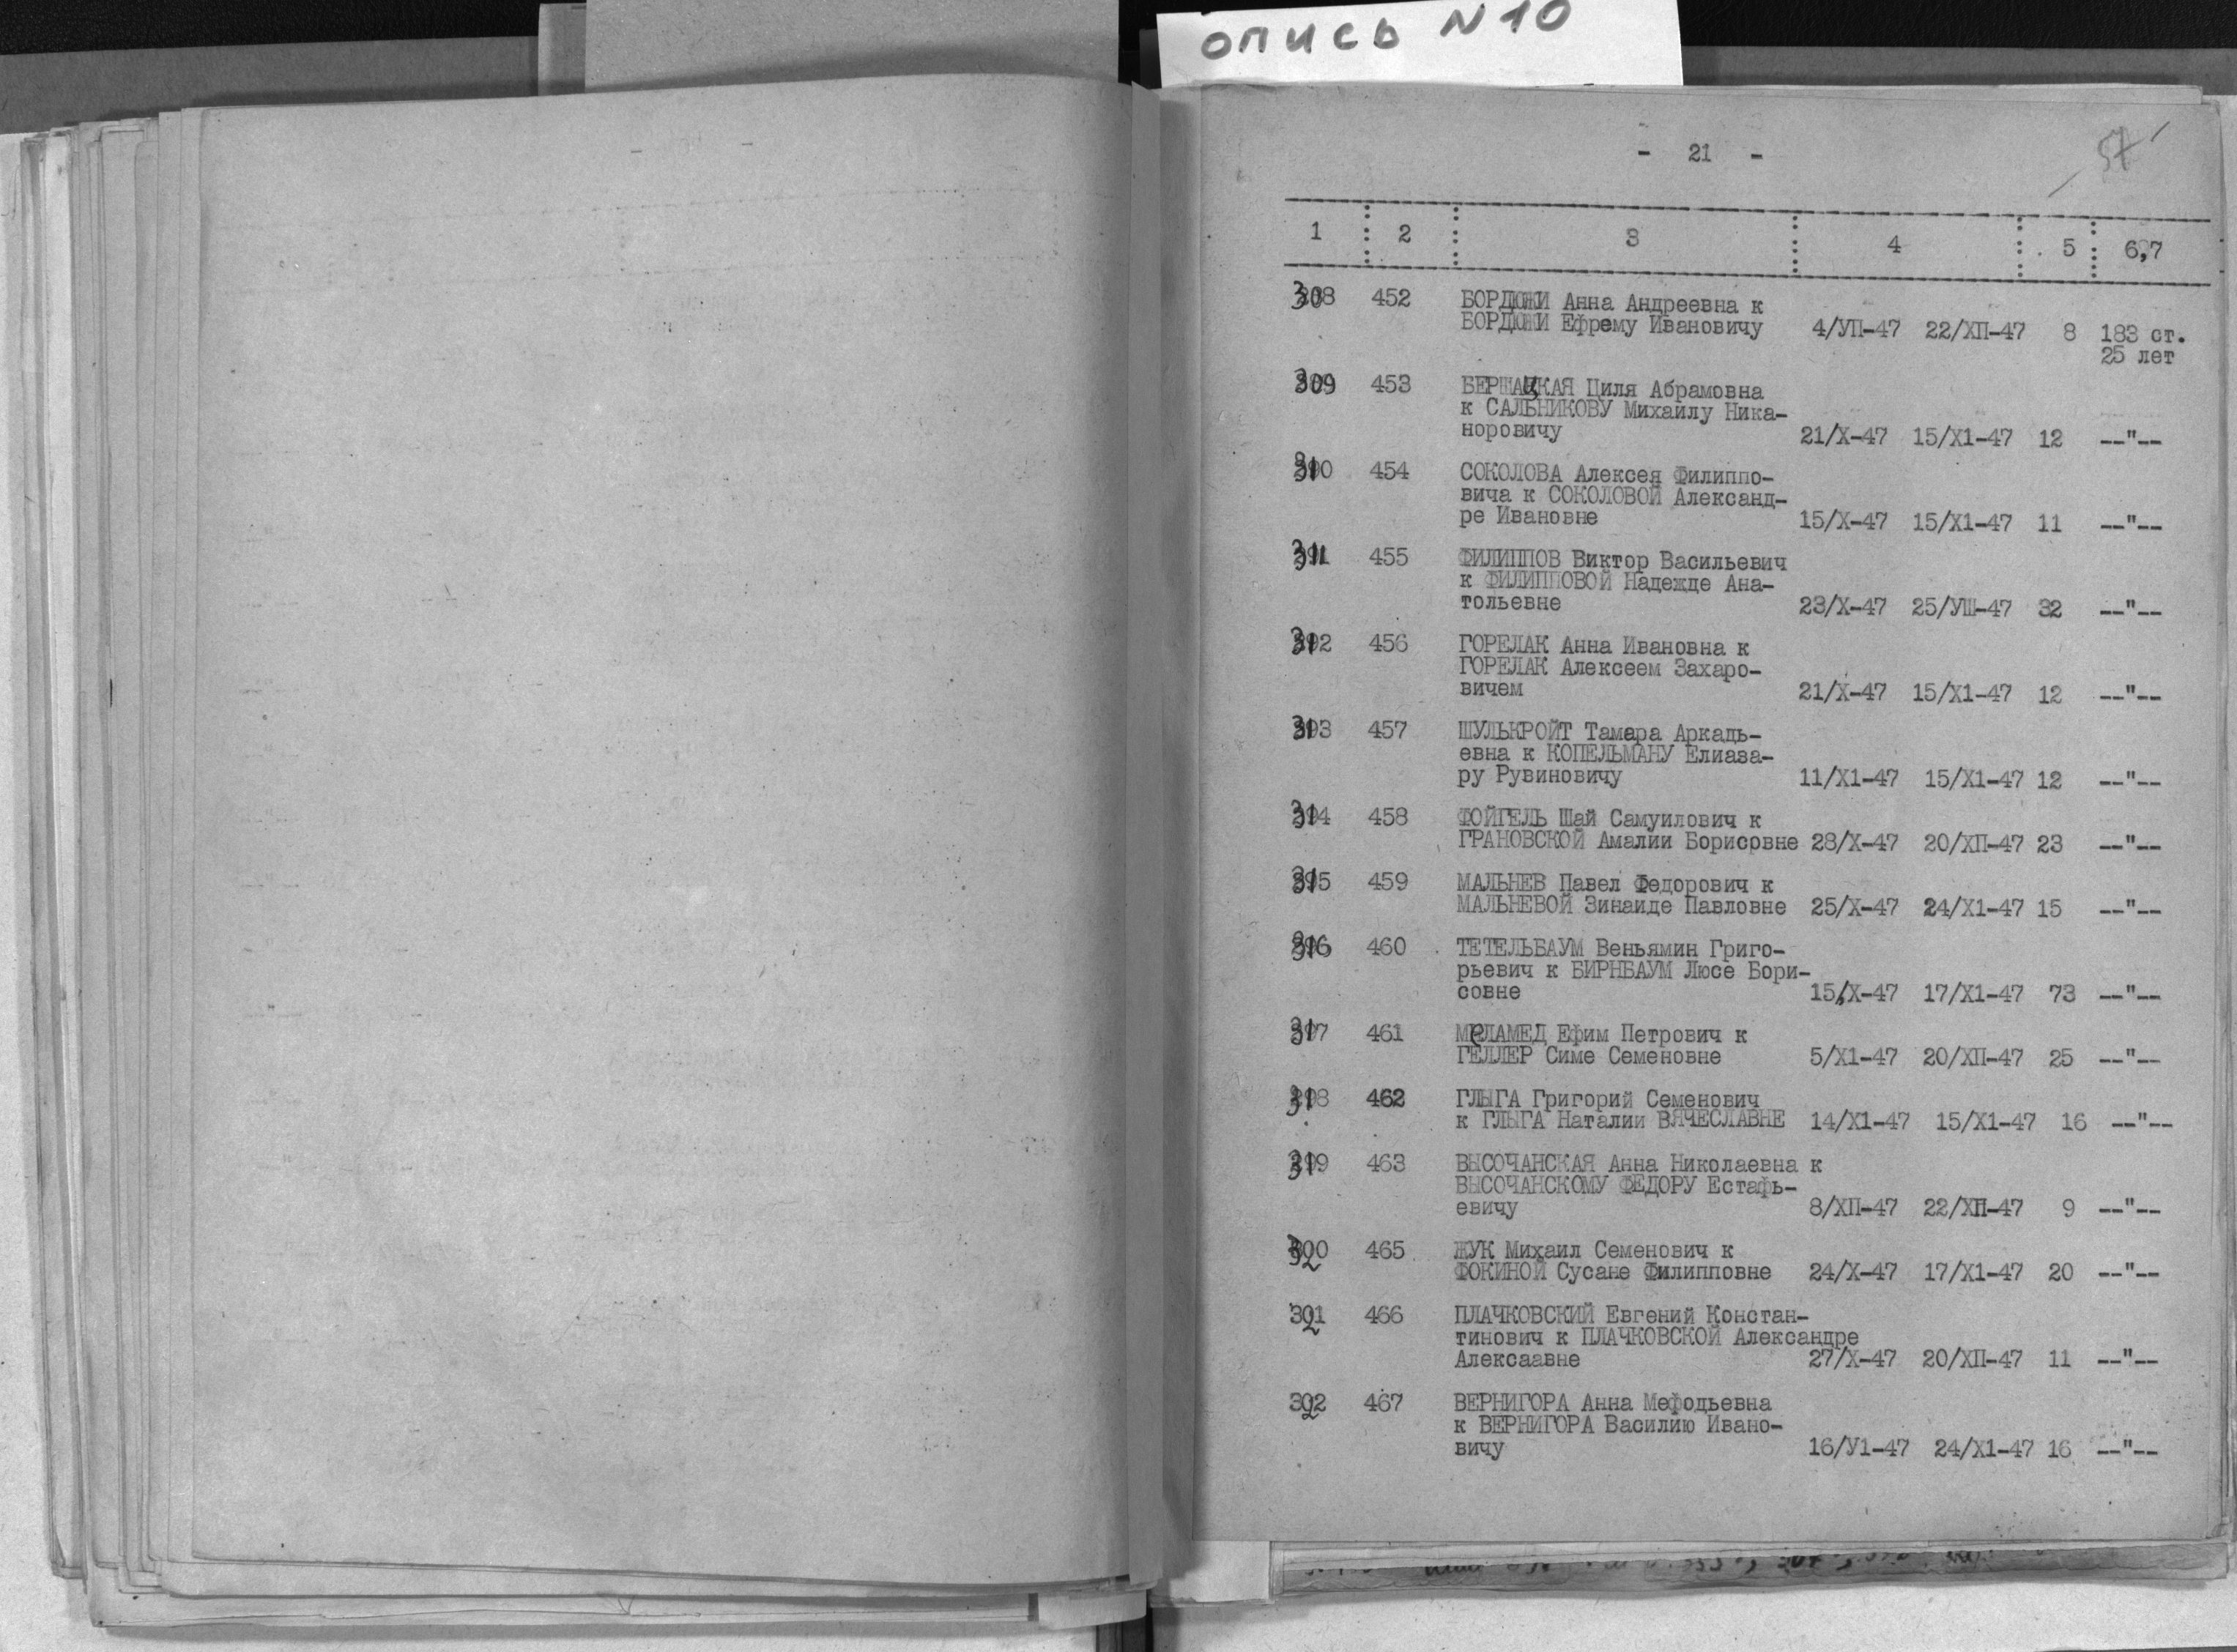 опись N 10
- 21 -
57
1 2 3 4 5 6,7
308 452 БОРДЮЖИ Анна Андреевна к
БОРДЮЖИ Ефрему Ивановичу 4/УП-47 22/ХП-47 8 183 ст.
25 лет
309 453 БЕРШАЦКАЯ Циля Абрамовна
к САЛЬНИКОВУ Михаилу Ника-
норовичу 21/Х-47 15/Х1-47 12 --"--
310 454 СОКОЛОВА Алексея Филиппо-
вича к СОКОЛОВОЙ Александ-
ре Ивановне 15/Х-47 15/Х1-47 11 --"--
311 455 ФИЛИППОВ Виктор Васильевич
к ФИЛИППОВОЙ Надежде Ана-
тольевне 23/Х-47 25/УШ-47 32 --"--
312 456 ГОРЕЛАК Анна Ивановна к
ГОРЕЛАК Алексеем Захаро-
вичем 21/Х-47 15/Х1-47 12 --"--
313 457 ШУЛЬКРОЙТ Тамара Аркадь-
евна к КОПЕЛЬМАНУ Елиаза-
ру Рувиновичу 11/Х1-47 15/Х1-47 12 --"--
314 458 ФОЙГЕЛЬ Шай Самуилович к
ГРАНОВСКОЙ Амалии Борисовне 28/Х-47 20/ХП-47 23 --"--
315 459 МАЛЬНЕВ Павел Федорович к
МАЛЬНЕВОЙ Зинаиде Павловне 25/Х-47 24/Х1-47 15 --"--
316 460 ТЕТЕЛЬБАУМ Веньямин Григо-
рьевич к БИРНБАУМ Люсе Бори-
совне 15/Х-47 17/Х1-47 73 --"--
317 461 МЕЛАМЕД Ефим Петрович к
ГЕЛЛЕР Симе Семеновне 5/Х1-47 20/ХП-47 25 --"--
318 462 ГЛЫГА Григорий Семенович
к ГЛЫГА Наталии ВЯЧЕСЛАВНЕ 14/Х1-47 15/Х1-47 16 --"--
319 463 ВЫСОЧАНСКАЯ Анна Николаевна к
ВЫСОЧАНСКОМУ ФЕДОРУ Естафь-
евичу 8/ХП-47 22/ХП-47 9 --"--
320 465 ЖУК Михаил Семенович к
ФОКИНОЙ Сусане Филипповне 24/Х-47 17/Х1-47 20 --"--
321 466 ПЛАЧКОВСКИЙ Евгений Констан-
тинович к ПЛАЧКОВСКОЙ Александре
Алексаавне 27/Х-47 20/ХП-47 11 --"--
322 467 ВЕРНИГОРА Анна Мефодьевна
к ВЕРНИГОРА Василию Ивано-
вичу 16/У1-47 24/Х1-47 16 --"--